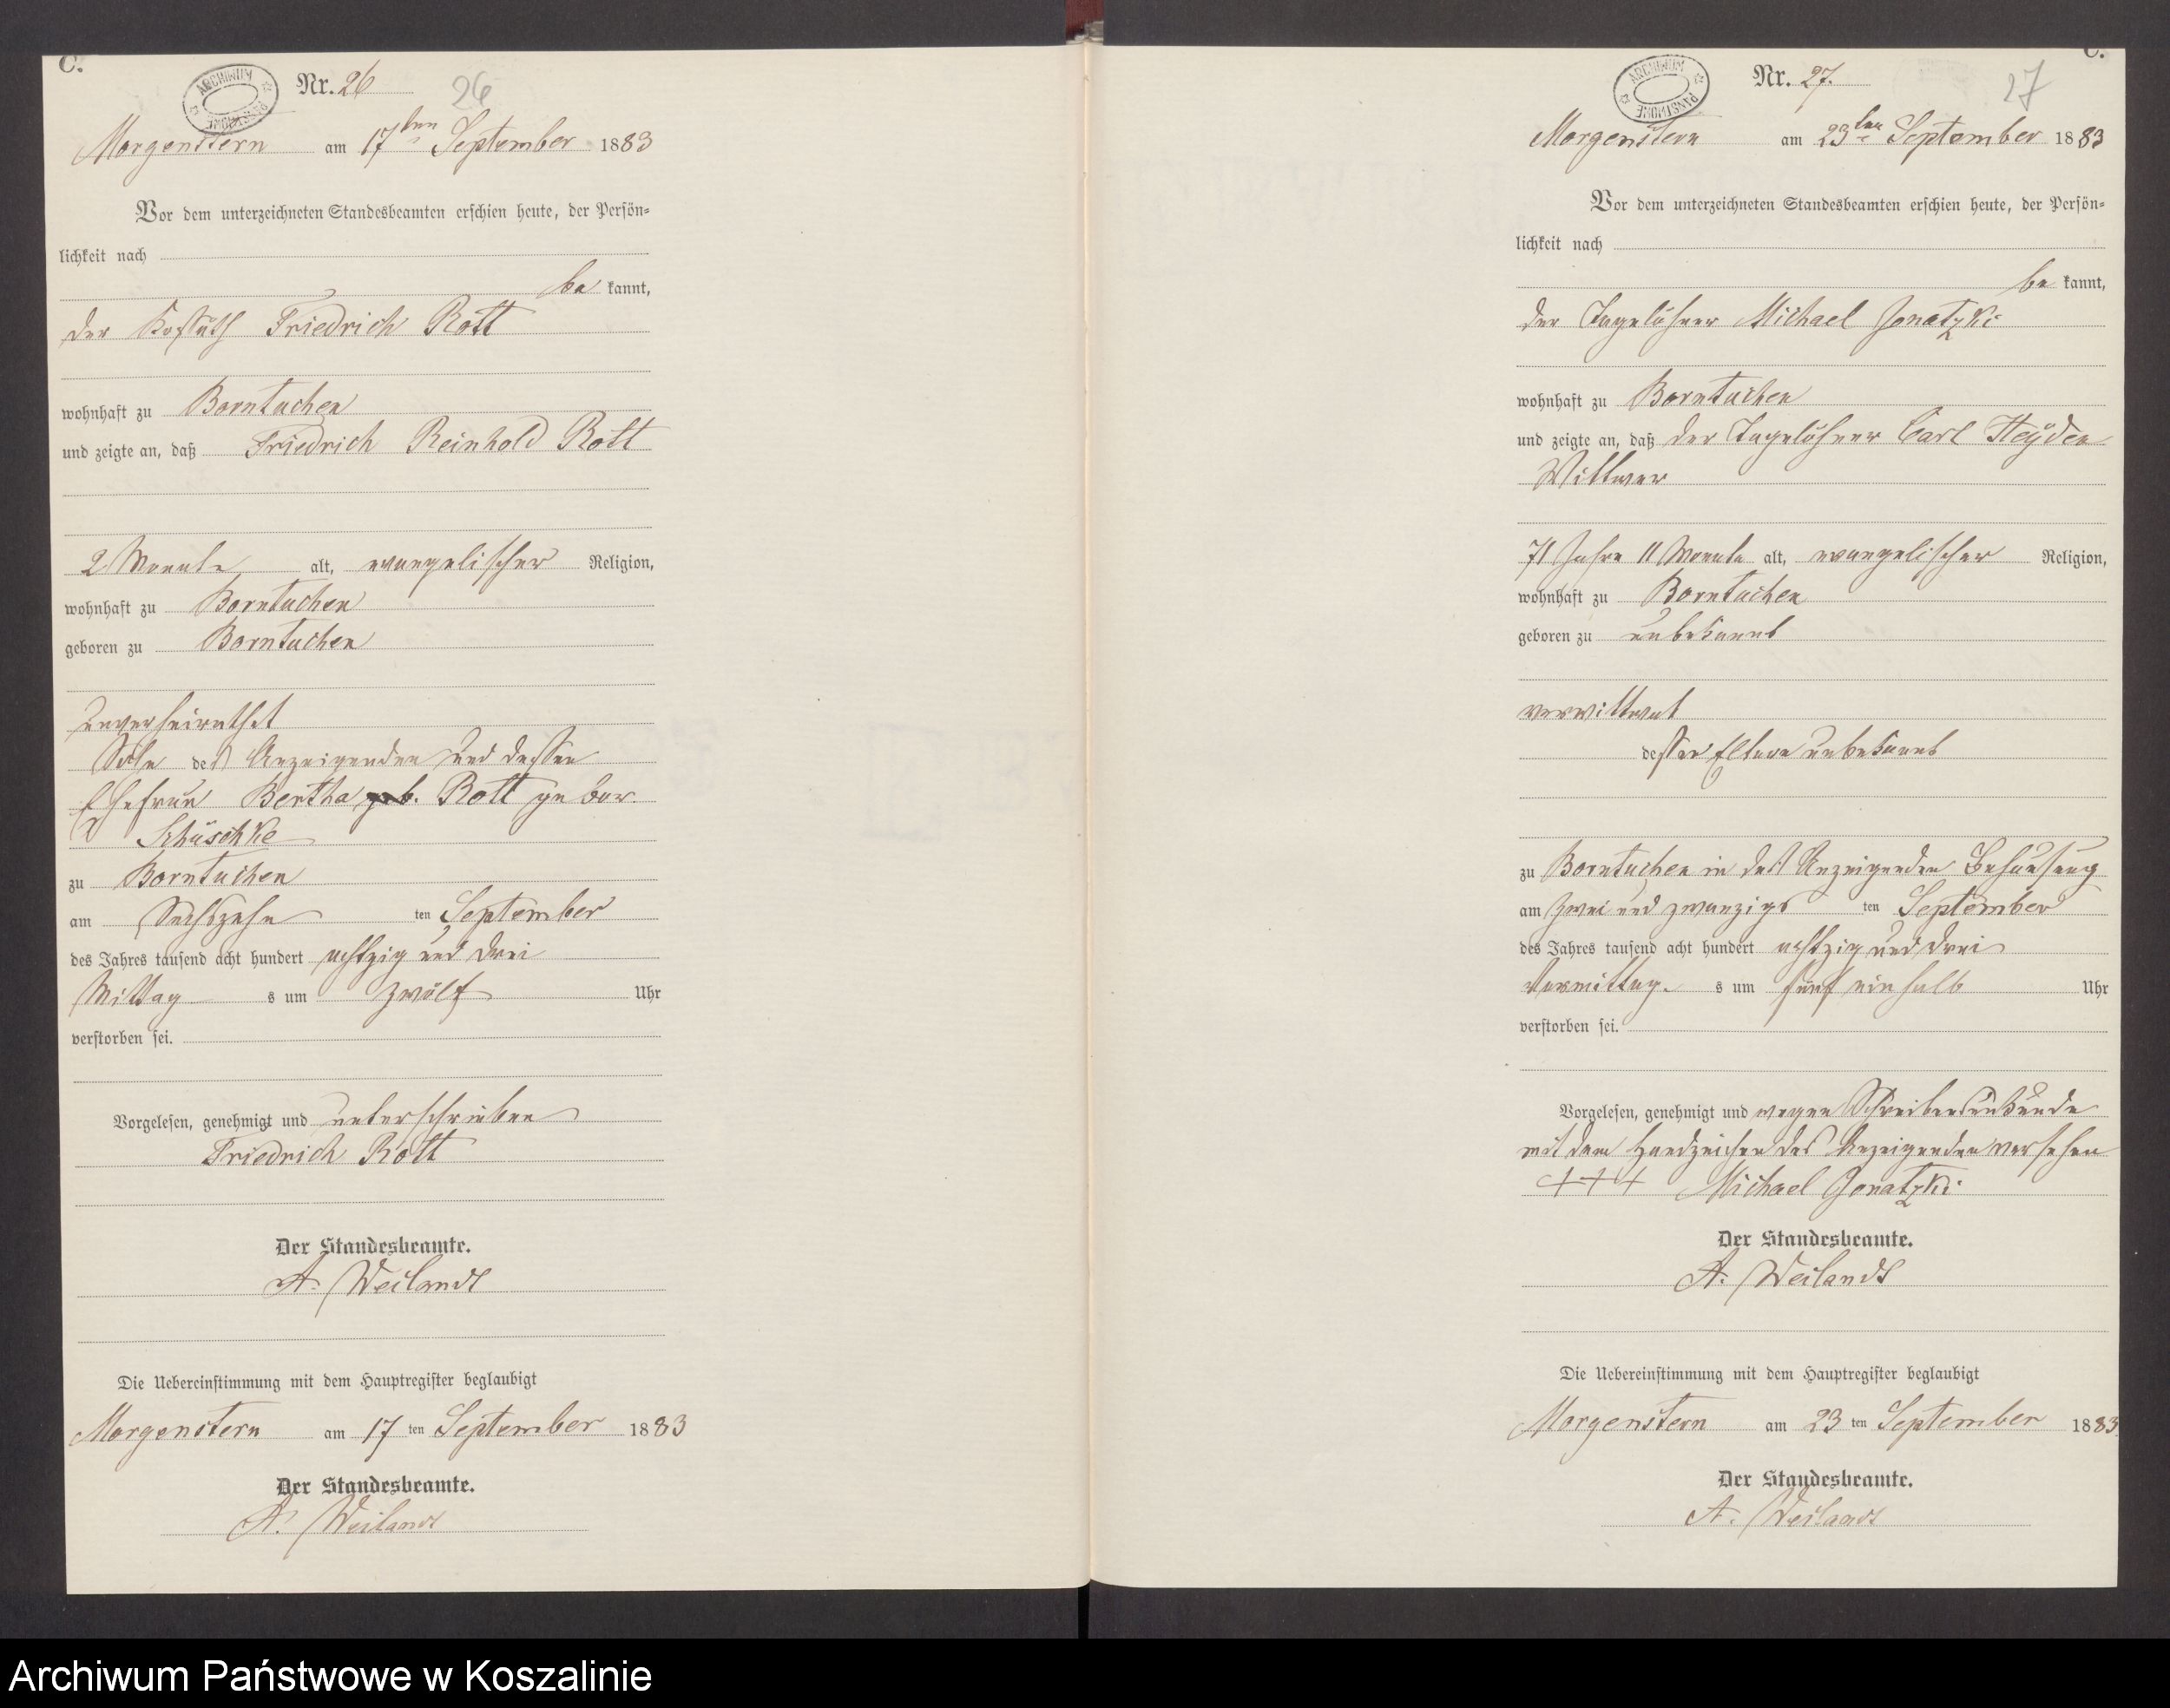 C.
ARCHIWUM PAŃSTWOWE
Nr. 26
26
Morgenstern am 17ten September 1883
Vor dem unterzeichneten Standesbeamten erschien heute, der Persön-
lichkeit nach
be kannt,
der Kossäth Friedrich Rott
wohnhaft zu Borntuchen
und zeigte an, daß Friedrich Reinhold Rott
2 Monate alt, evangelischer Religion,
wohnhaft zu Borntuchen
geboren zu Borntuchen
unverheirathet
Sohn des Anzeigenden und dessen
Ehefrau Bertha geb. Rott gebor.
Schüschke
zu Borntuchen
am Sechszehn ten September
des Jahres tausend acht hundert achtzig und drei
Mittag s um zwölf Uhr
verstorben sei.
Vorgelesen, genehmigt und unterschrieben
Friedrich Rott
Der Standesbeamte.
A. Weilandt
Die Uebereinstimmung mit dem Hauptregister beglaubigt
Morgenstern am 17 ten September 1883
Der Standesbeamte.
A. Weilandt
C.
ARCHIWUM PAŃSTWOWE
Nr. 27.
27
Morgenstern am 23ten September 1883
Vor dem unterzeichneten Standesbeamten erschien heute, der Persön-
lichkeit nach
be kannt,
der Tagelöhner Michael Jonatzki
wohnhaft zu Borntuchen
und zeigte an, daß der Tagelöhner Carl Heyden
Wittwer
71 Jahre 11 Monate alt, evangelischer Religion,
wohnhaft zu Borntuchen
geboren zu unbekannt
verwittwet
dessen Eltern unbekannt
zu Borntuchen in des Anzeigenden Behausung
am zwei und zwanzigs ten September
des Jahres tausend acht hundert achtzig und drei
Vormittag. s um fünf ein halb Uhr
verstorben sei.
Vorgelesen, genehmigt und wegen Schreibensunkunde
mit dem Handzeichen des Anzeigenden versehen
+++ Michael Jonatzki
Der Standesbeamte.
A. Weilandt
Die Uebereinstimmung mit dem Hauptregister beglaubigt
Morgenstern am 23 ten September 1883.
Der Standesbeamte.
A. Weilandt
Archiwum Państwowe w Koszalinie